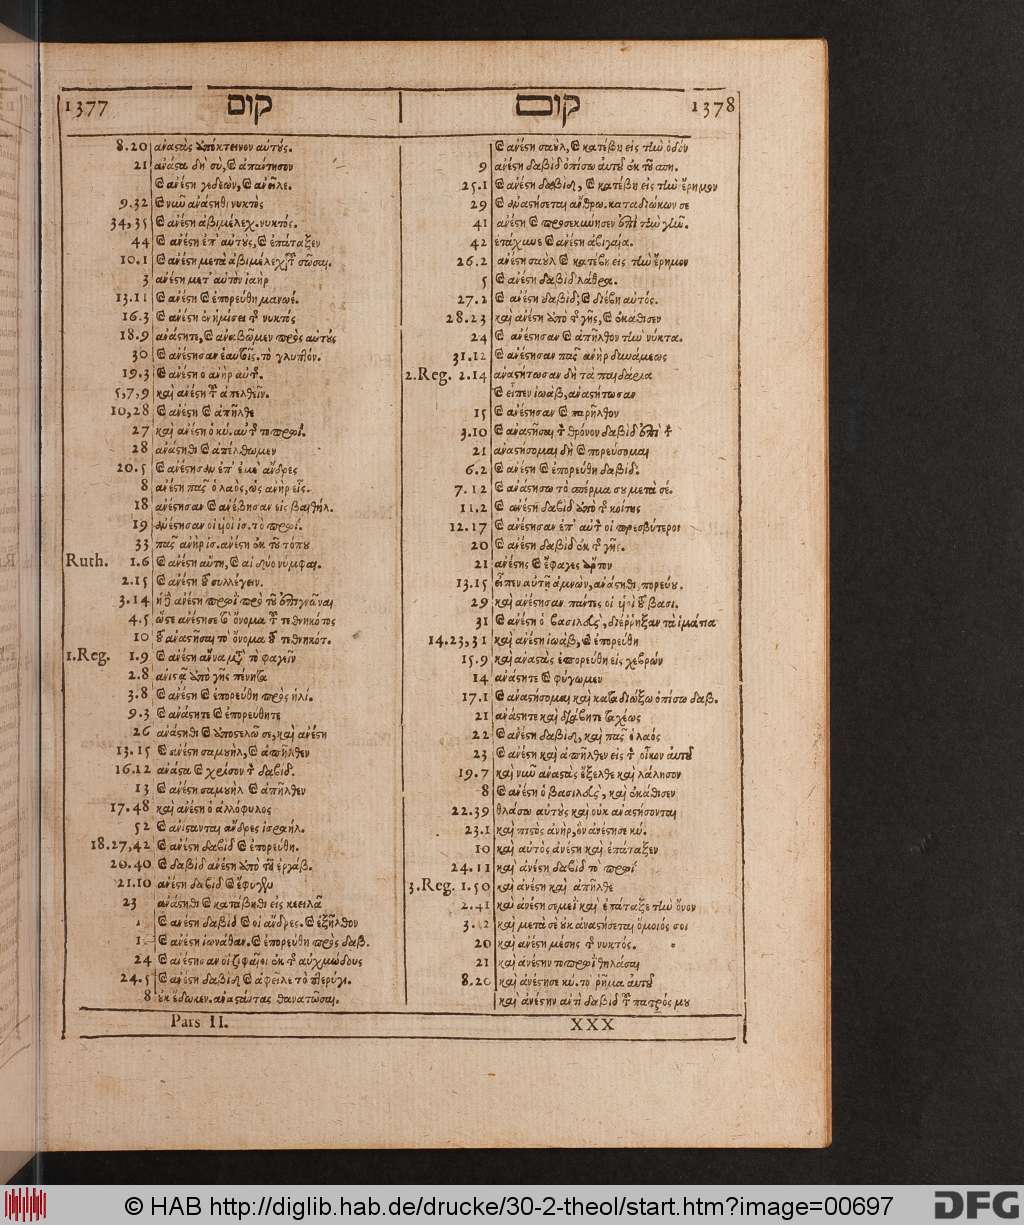 1377 קום
8.20 ἀναστὰς ἀπόκτεινον αὐτούς.
21 ἀνάστα δὴ σὺ, καὶ ἀπάντησον
καὶ ἀνέστη γεδεὼν, καὶ ἀνεῖλε.
9.32 καὶ νῦν ἀνάστηθι νυκτὸς
34,35 καὶ ἀνέστη ἀβιμέλεχ. νυκτός.
44 καὶ ἀνέστη ἐπ' αὐτοὺς, καὶ ἐπάταξεν
10.1 καὶ ἀνέστη μετὰ ἀβιμέλεχ τοῦ σῶσαι.
3 ἀνέστη μετ' αὐτὸν ἰαὴρ
13.11 καὶ ἀνέστη καὶ ἐπορεύθη μανωέ.
16.3 καὶ ἀνέστη ἐν ἡμίσει τῆς νυκτός
18.9 ἀνάστητε, καὶ ἀναβῶμεν πρὸς αὐτοὺς
30 καὶ ἀνέστησαν ἑαυτοῖς. τὸ γλυπτόν.
19.3 καὶ ἀνέστη ὁ ἀνὴρ αὐτῆς.
5,7,9 καὶ ἀνέστη τοῦ ἀπελθεῖν.
10,28 καὶ ἀνέστη καὶ ἀπῆλθε
27 καὶ ἀνέστη ὁ κύ. αὐτῆς τοπρωΐ.
28 ἀνάστηθι καὶ ἀπέλθωμεν
20.5 καὶ ἀνέστησαν ἐπ' ἐμὲ ἄνδρες
8 ἀνέστη πᾶς ὁ λαὸς, ὡς ἀνὴρ εἷς.
18 ἀνέστησαν καὶ ἀνέβησαν εἰς βαιθήλ.
19 ἀνέστησαν οἱ υἱοὶ ἰσ. τὸ πρωΐ.
33 πᾶς ἀνὴρ ἰσ. ἀνέστη ἐκ τοῦ τόπου
Ruth. 1.6 καὶ ἀνέστη αὕτη, καὶ αἱ δύο νύμφαι.
2.15 καὶ ἀνέστη τοῦ συλλέγειν.
3.14 ἡ δὲ ἀνέστη πρωῒ πρὸ τοῦ ἐπιγνῶναι
4.5 ὥστε ἀνέστησε τὸ ὄνομα τοῦ τεθνηκότος
10 τοῦ ἀναστῆσαι τὸ ὄνομα τοῦ τεθνηκότ.
1.Reg. 1.9 καὶ ἀνέστη ἄννα μετὰ τὸ φαγεῖν
2.8 ἀνιστᾷ ἀπὸ γῆς πένητα
3.8 καὶ ἀνέστη καὶ ἐπορεύθη πρὸς ἡλί.
9.3 καὶ ἀνάστητε καὶ ἐπορεύθητε
26 ἀνάστηθι καὶ ἀποστελῶ σε, καὶ ἀνέστη
13.15 καὶ ἀνέστη σαμουὴλ, καὶ ἀπῆλθεν
16.12 ἀνάστα καὶ χρίσον τὸν δαβίδ.
13 καὶ ἀνέστη σαμουὴλ καὶ ἀπῆλθεν
17.48 καὶ ἀνέστη ὁ ἀλλόφυλος
52 καὶ ἀνίστανται ἄνδρες ἰσραήλ.
18.27,42 καὶ ἀνέστη δαβὶδ καὶ ἐπορεύθη.
20.40 καὶ δαβὶδ ἀνέστη ἀπὸ τοῦ ἐργάβ.
21.10 ἀνέστη δαβὶδ καὶ ἔφυγεν
23 ἀνάστηθι καὶ κατάβηθι εἰς κεειλὰ
καὶ ἀνέστη δαβὶδ καὶ οἱ ἄνδρες. καὶ ἐξῆλθον
καὶ ἀνέστη ἰωνάθαν. καὶ ἐπορεύθη πρὸς δαβ.
24 καὶ ἀνέστησαν οἱ ζιφαῖοι ἐκ τῆς αὐχμώδους
24.5 καὶ ἀνέστη δαβὶδ καὶ ἀφεῖλε τὸ πτερύγι.
8 οὐκ ἔδωκεν. ἀναστάντας θανατῶσαι.
Pars II.
קום 1378
καὶ ἀνέστη σαοὺλ, καὶ κατέβη εἰς τὴν ὁδὸν
9 ἀνέστη δαβὶδ ὀπίσω αὐτοῦ ἐκ τοῦ σπη.
25.1 καὶ ἀνέστη δαβὶδ, καὶ κατέβη εἰς τὴν ἔρημον
29 καὶ ἀναστήσεται ἄνθρω. καταδιώκων σε
41 ἀνέστη καὶ προσεκύνησεν ἐπὶ τὴν γῆν.
42 ἐτάχυνε καὶ ἀνέστη ἀβιγαία.
26.2 ἀνέστη σαοὺλ καὶ κατέβη εἰς τὴν ἔρημον
5 καὶ ἀνέστη δαβὶδ λάθρα.
27.2 καὶ ἀνέστη δαβὶδ, καὶ διέβη αὐτός.
28.23 καὶ ἀνέστη ἀπὸ τῆς γῆς, καὶ ἐκάθισεν
24 καὶ ἀνέστησαν καὶ ἀπῆλθον τὴν νύκτα.
31.12 καὶ ἀνέστησαν πᾶς ἀνὴρ δυνάμεως
2.Reg. 2.14 ἀναστήτωσαν δὴ τὰ παιδάρια
καὶ εἶπεν ἰωὰβ, ἀναστήτωσαν
15 καὶ ἀνέστησαν καὶ παρῆλθον
3.10 καὶ ἀναστῆσαι τὸν θρόνον δαβὶδ ἐπὶ τὸν
21 ἀναστήσομαι δὴ καὶ πορεύσομαι
6.2 καὶ ἀνέστη καὶ ἐπορεύθη δαβίδ.
7.12 καὶ ἀναστήσω τὸ σπέρμα σου μετὰ σέ.
11.2 καὶ ἀνέστη δαβὶδ ἀπὸ τῆς κοίτης
12.17 καὶ ἀνέστησαν ἐπ' αὐτὸν οἱ πρεσβύτεροι
20 καὶ ἀνέστη δαβὶδ ἐκ τῆς γῆς.
21 ἀνέστης καὶ ἔφαγες ἄρτον
13.15 εἶπεν αὐτῇ ἀμνὼν, ἀνάστηθι, πορεύου.
29 καὶ ἀνέστησαν πάντες οἱ υἱοὶ τοῦ βασι.
31 καὶ ἀνέστη ὁ βασιλεὺς, διέῤῥηξαν τὰ ἱμάτια
14.23,31 καὶ ἀνέστη ἰωὰβ, καὶ ἐπορεύθη
15.9 καὶ ἀναστὰς ἐπορεύθη εἰς χεβρών
14 ἀνάστητε καὶ φύγωμεν
17.1 καὶ ἀναστήσομαι καὶ καταδιώξω ὀπίσω δαβ.
21 ἀνάστητε καὶ διάβητε ταχέως
22 καὶ ἀνέστη δαβὶδ, καὶ πᾶς ὁ λαός
23 καὶ ἀνέστη καὶ ἀπῆλθεν εἰς τὸν οἶκον αὐτοῦ
19.7 καὶ νῦν ἀναστὰς ἔξελθε καὶ λάλησον
8 καὶ ἀνέστη ὁ βασιλεὺς, καὶ ἐκάθισεν
22.39 θλάσω αὐτοὺς καὶ οὐκ ἀναστήσονται
23.1 καὶ πιστὸς ἀνὴρ, ὃν ἀνέστησε κύ.
10 καὶ αὐτὸς ἀνέστη καὶ ἐπάταξεν
24.11 καὶ ἀνέστη δαβὶδ τὸ πρωΐ
3.Reg. 1.50 καὶ ἀνέστη καὶ ἀπῆλθε
2.41 καὶ ἀνέστη σεμεῒ καὶ ἐπέταξε τὴν ὄνον
3.12 καὶ μετὰ σὲ οὐκ ἀναστήσεται ὅμοιός σοι
20 καὶ ἀνέστη μέσης τῆς νυκτός.
21 καὶ ἀνέστην τοπρωῒ θηλάσαι
8.20 καὶ ἀνέστησε κύ. τὸ ῥῆμα αὐτοῦ
καὶ ἀνέστην ἀντὶ δαβὶδ τοῦ πατρός μου
XXX
© HAB http://diglib.hab.de/drucke/30-2-theol/start.htm?image=00697
DFG